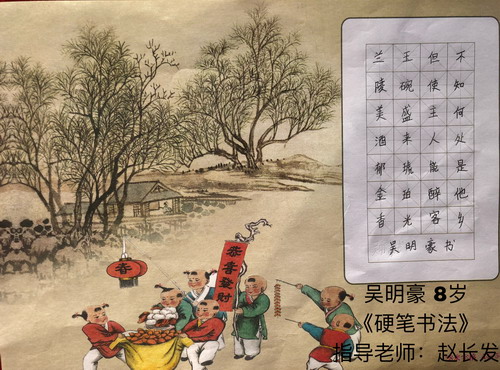 兰陵美酒郁金香
玉碗盛来琥珀光
但使主人能醉客
不知何处是他乡
吴明豪书
春
恭喜發財
吴明豪 8岁
《硬笔书法》
指导老师：赵长发